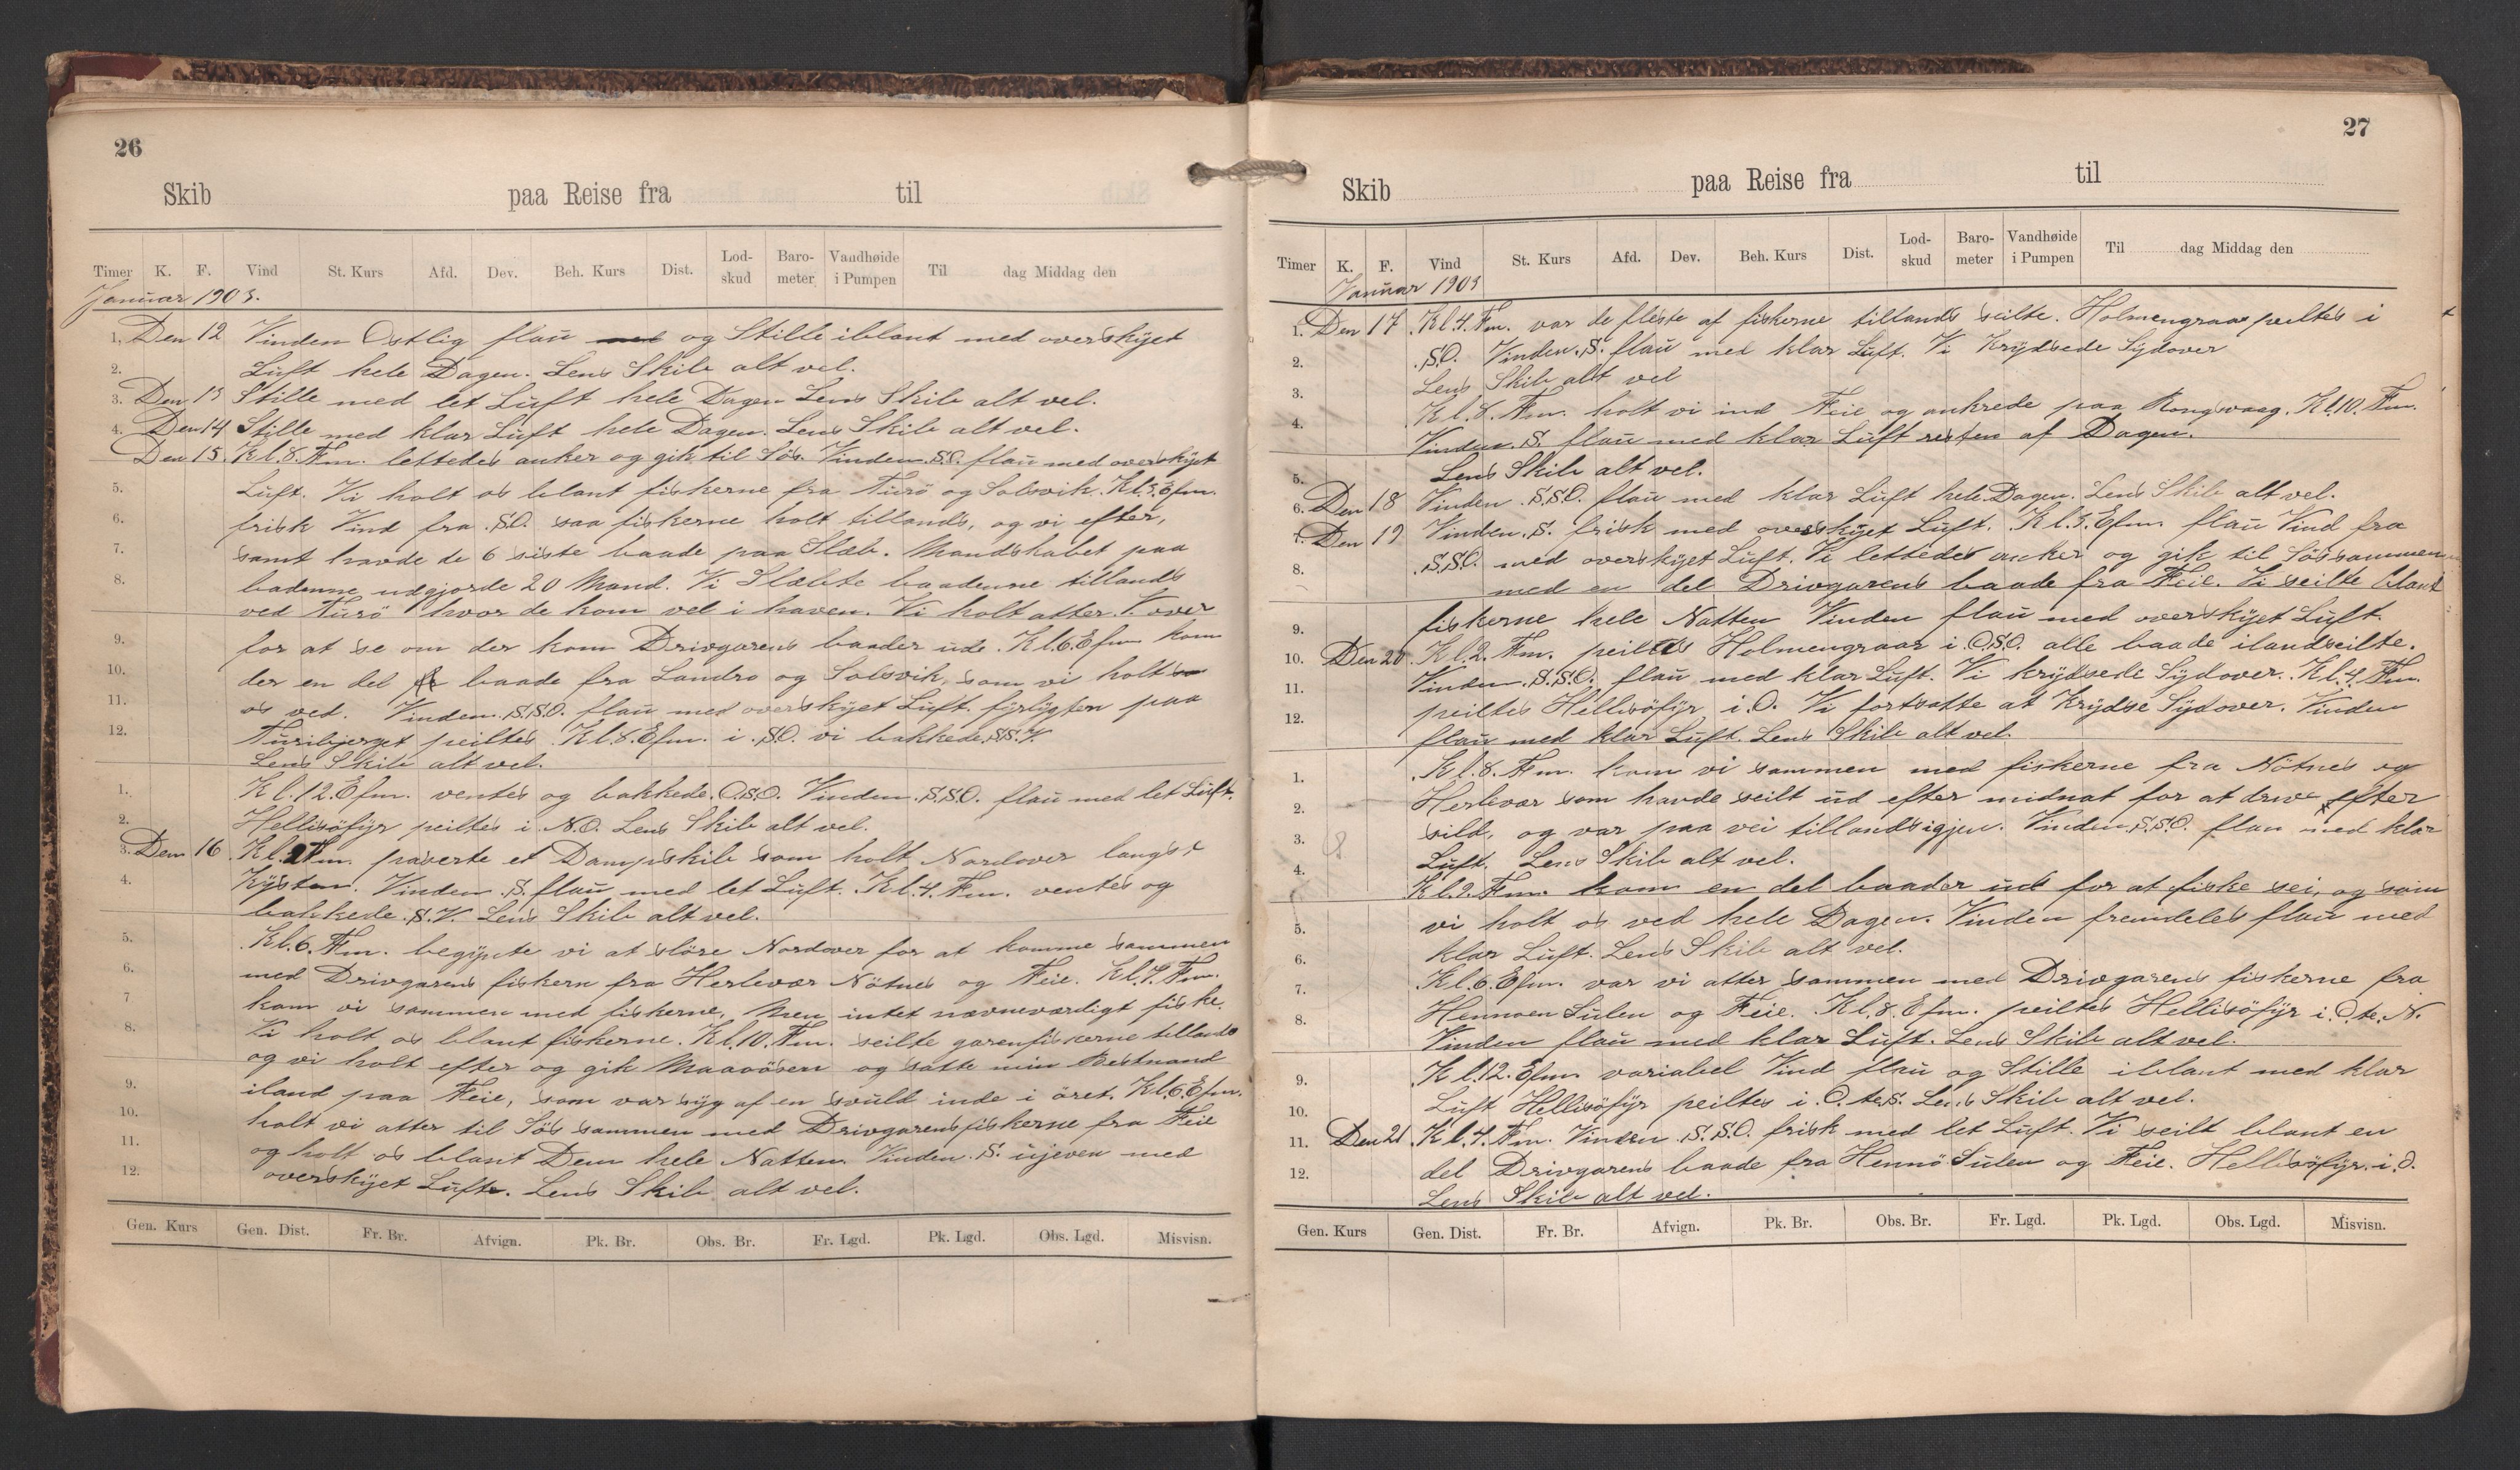 26
Skib paa Reise fra til
Timer K. F. Vind St. Kurs Afd. Dev. Beh. Kurs Dist. Lod-skud Baro-meter Vandhøide i Pumpen Til dag Middag den
Januar 1903.
1. Den 12 Vinden Ostlig flau med og Stille iblant med overskyet
2. Luft hele Dagen. Lens Skib alt vel.
3. Den 13 Stille med let Luft hele Dagen Lens Skib alt vel.
4. Den 14 Stille med klar Luft hele Dagen. Lens Skib alt vel.
Den 15. Kl. 8. Fm. lettedes anker og gik til Sös. Vinden .S.O. flau med overskyet
5. Luft. Vi holt os blant fiskerne fra Turö og Solsvik. Kl. 3. Efm.
6. frisk Vind fra .S.O. saa fiskerne holt tillands, og vi efter,
7. samt havde de 6 siste baade paa Slæb. Mandskabet paa
8. badenne udgjorde 20 Mand. Vi Slæbte baadenne tillands
ved Turö hvor de kom vel i haven. Vi holt atter V. over
9. for at se om der kom Drivgarens baader ude. Kl. 6. Efm kom
10. der en del baade fra Landro og Solsvik, som vi holt
11. os ved. Vinden .S.S.O. flau med overskyet Luft. fyrlygten paa
12. Tursbjerget peiltes Kl. 8. Efm. i .S.O. vi bakkede .S.S.V.
Lens Skib alt vel.
1. Kl. 12. Efm. ventes og bakkede .O.S.O. Vinden .S.S.O. flau med let Luft.
2. Hellisöfyr peiltes i .N.O. Lens Skib alt vel.
3. Den 16 Kl. 2 Fm. paserte et Dampskib som holt Nordover langst
4. Kysten. Vinden .S. flau med let Luft. Kl. 4. Fm. ventes og
bakkede .S.V. Lens Skib alt vel.
5. Kl. 6. Fm. begynte vi at slöre Nordover for at komme sammen
6. med Drivgarens fiskern fra Herlevær Nötnes og Feie. Kl. 7. Fm.
7 kom vi sammen med fiskerne. Men intet nævneværdigt fiske.
8. Vi holt os blant fiskerne. Kl. 10. Fm. seilte garenfiskerne tillands
og vi holt efter og gik Maaoösen og satte min Bestmand
9. iland paa Feie, som var syg af en svuld inde i öret. Kl. 6. Efm.
10. holt vi atter til Sös sammen med Drivgarensfiskerne fra Feie
11. og holt os blant Dem hele Natten. Vinden .S. ujeven med
12. overskyet Luft. Lens Skib alt vel.
Gen. Kurs Gen. Dist. Fr. Br. Afvign. Pk. Br. Obs. Br. Fr. Lgd. Pk. Lgd. Obs. Lgd. Misvisn.
27
Skib paa Reise fra til
Timer K. F. Vind St. Kurs Afd. Dev. Beh. Kurs Dist. Lod-skud Baro-meter Vandhøide i Pumpen Til dag Middag den
Januar 1903
1. Den 17 .Kl. 4. Fm. var de fleste af fiskerne tillands seilte. Holmengraas peiltes i
2. .S.O. Vinden .S. flau med klar Luft. Vi Krydsede Sydover
3. Lens Skib alt vel
4. Kl. 8. Fm. holt vi ind Feie og ankrede paa Rongsvaag. Kl. 10. Fm.
Vinden .S. flau med klar Luft resten af Dagen.
5. Lens Skib alt vel.
6. Den 18 Vinden .S.S.O. flau med klar Luft hele Dagen. Lens Skib alt vel.
7. Den 19 Vinden .S. frisk med overskyet Luft. Kl. 3. Efm. flau Vind fra
8. .S.S.O. med overskyet Luft. Vi lettedes anker og gik til Sös sammen
med en del Drivgarens baade fra Feie. Vi seilte blant
9. fiskerne hele Natten Vinden flau med overskyet Luft.
10. Den 20 .Kl. 2. Fm. peiltes Holmengraas i .O.S.O. alle baade ilandseilte.
11. Vinden .S.S.O. flau med klar Luft. Vi krydsede Sydover. Kl. 4. Fm.
12. peiltes Hellisöfyr i .O. Vi fortsatte at Krydse Sydover. Vinden
flau med klar Luft. Lens Skib alt vel.
1. .Kl. 8. Fm. kom vi sammen med fiskerne fra Nötnes og
2. Herlevær som havde seilt ud efter midnat for at drive efter
3. sild, og var paa vei tillandsigjen. Vinden .S.S.O. flau med klar
4. Luft. Lens Skib alt vel.
Kl. 9. Fm. kom en del baader ud for at fiske sei, og som
5. vi holt os ved hele Dagen. Vinden fremdeles flau med
6. klar Luft. Lens Skib alt vel.
7. Kl. 6. Efm. var vi atter sammen med Drivgarens fiskerne fra
8. Hennoen Sulen og Feie. Kl. 8. Efm. peiltes Hellisöfyr i .O. te. N.
Vinden flau med klar Luft. Lens Skib alt vel.
9. .Kl. 12. Efm. variabel Vind flau og Stille iblant med klar
10. Luft Hellisöfyr peiltes i .O. te. S. Lens Skib alt vel.
11. Den 21 .Kl. 4. Fm. Vinden .S.S.O. frisk med let Luft. Vi seilt blant en
12. del Drivgarens baade fra Hennö Sulen og Feie. Hellisöfyr i .O.
Lens Skib alt vel.
Gen. Kurs Gen. Dist. Fr. Br. Afvign. Pk. Br. Obs. Br. Fr. Lgd. Pk. Lgd. Obs. Lgd. Misvisn.